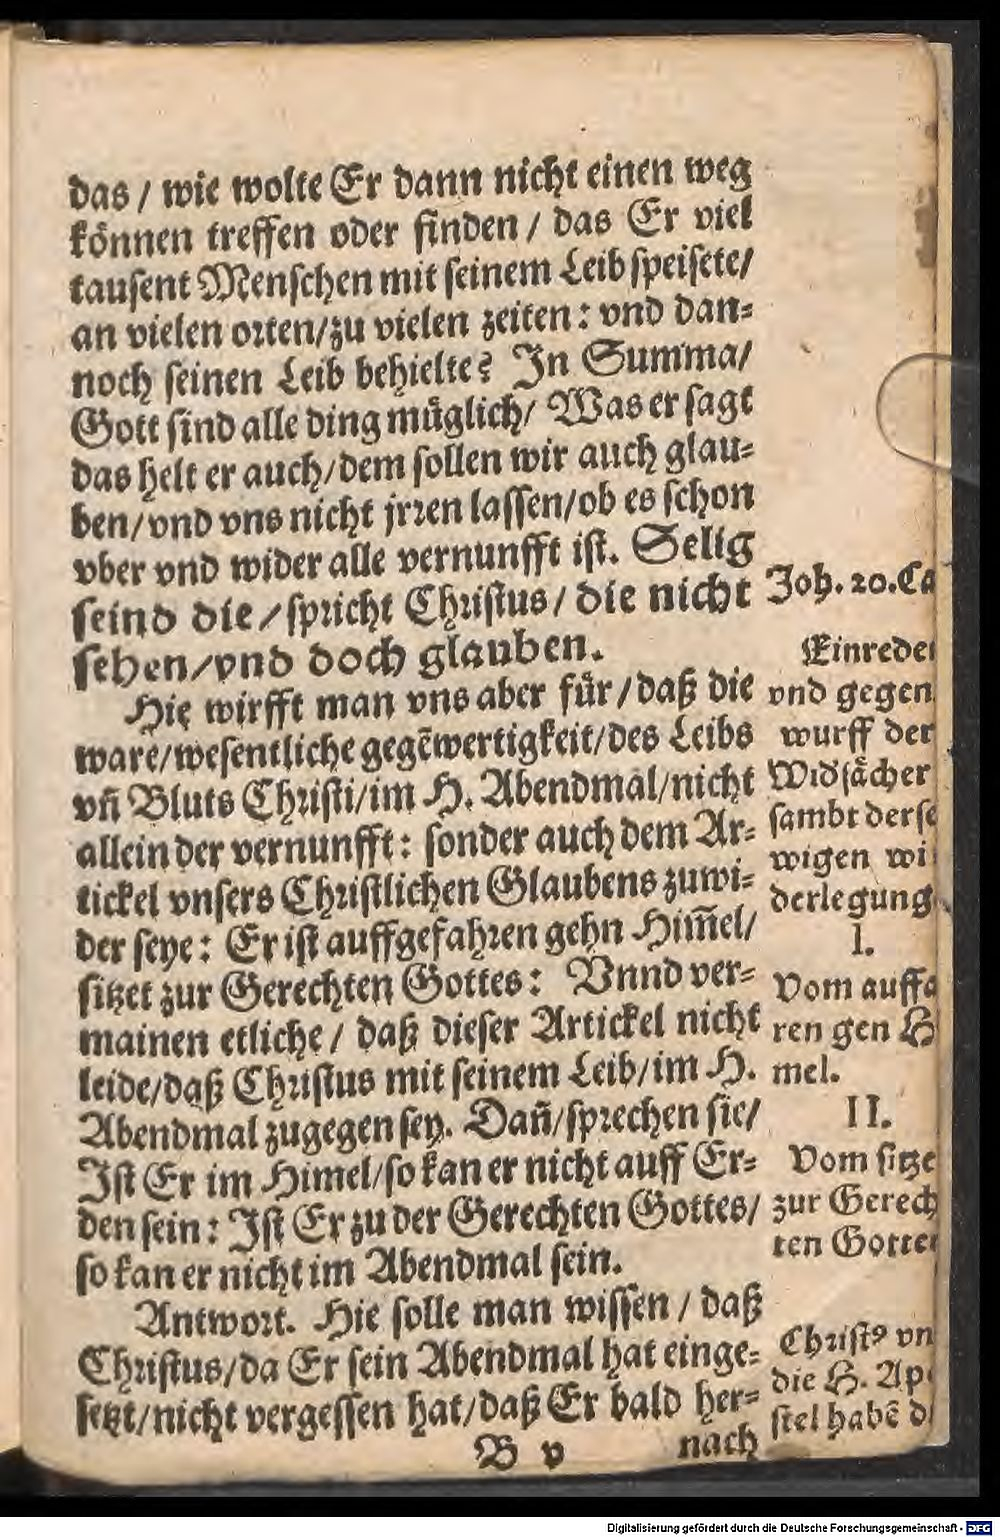 das / wie wolte Er dann nicht einen weg
können treffen oder finden / das Er viel
tausent Menschen mit seinem Leib speisete/
an vielen orten/zu vielen zeiten: vnd dan-
noch seinen Leib behielte? In Summa/
Gott sind alle ding müglich/ Was er sagt
das helt er auch/dem sollen wir auch glau-
ben/vnd vns nicht jrren lassen/ob es schon
vber vnd wider alle vernunfft ist. Selig
seind die/spricht Christus/die nicht
sehen/vnd doch glauben.
Hie wirfft man vns aber für/daß die
ware/wesentliche gegẽwertigkeit/des Leibs
vñ Bluts Christi/im H. Abendmal/nicht
allein der vernunfft: sonder auch dem Ar-
tickel vnsers Christlichen Glaubens zuwi-
der seye: Er ist auffgefahren gehn Him̃el/
sitzet zur Gerechten Gottes: Vnnd ver-
mainen etliche / daß dieser Artickel nicht
leide/daß Christus mit seinem Leib/im H.
Abendmal zugegen sey. Dañ/sprechen sie/
Ist Er im Himel/so kan er nicht auff Er-
den sein: Ist Er zu der Gerechten Gottes/
so kan er nicht im Abendmal sein.
Antwort. Hie solle man wissen / daß
Christus/da Er sein Abendmal hat einge-
setzt/nicht vergessen hat/daß Er bald her-
B v nach
Joh. 20.Ca
Einreden
vnd gegen
wurff der
Widsächer
sambt derse
wigen wi
derlegung
I.
Vom auffa
ren gen H
mel.
II.
Vom sitze
zur Gerech
ten Gottes
Christ9 vn
die H. Ap
stel habẽ d
Digitalisierung gefördert durch die Deutsche Forschungsgemeinschaft - DFG